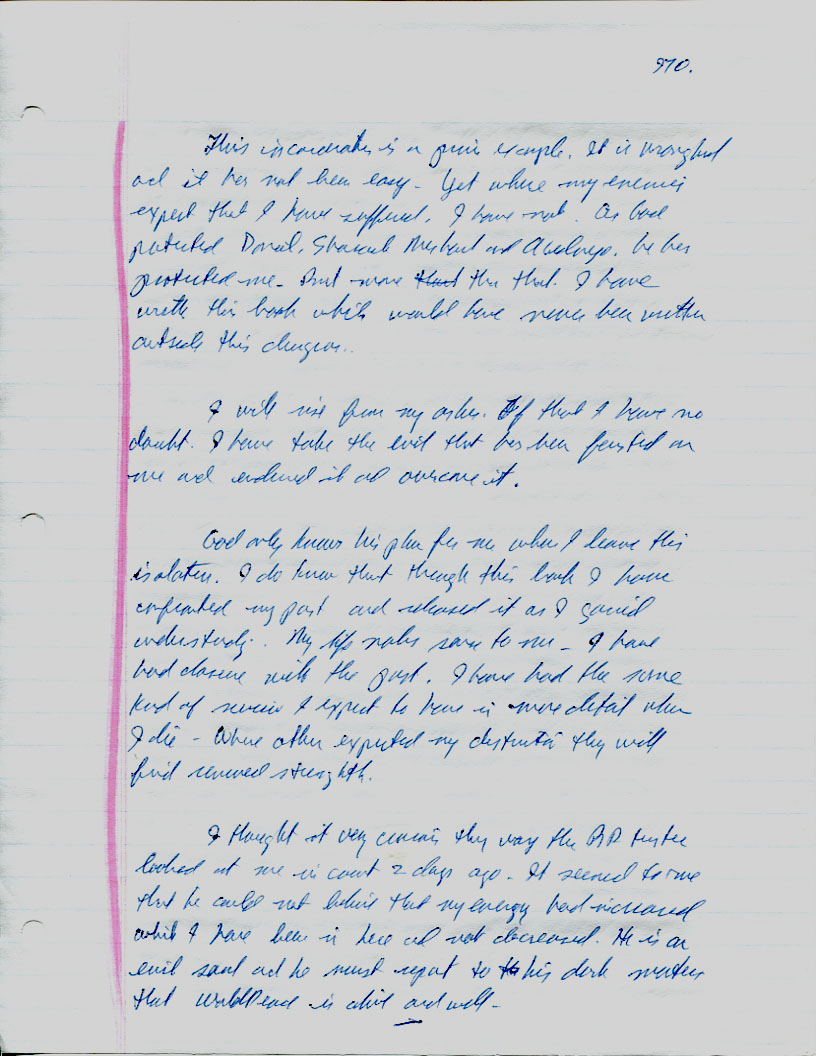 970.
This incarceration is a prime example. It is wrongful
and it has not been easy - Yet where my enemies
expect that I have suffered, I have not. As God
protected Daniel, Shadrach Meshach and Abednego, he has
protected me - But more than that. I have
written this book which would have never been written
outside this dungeon..
I will rise from my ashes. Of that I have no
doubt. I have taken the evil that has been foisted on
me and endured it and overcome it.
God only knows his plan for me when I leave this
isolation. I do know that through this book I have
confronted my past and released it as I gained
understanding. My life makes sense to me - I have
had closure with the past. I have had the same
kind of review I expect to have in more detail when
I die - Where other expected my destruction they will
find renewed strength.
I thought it very curious the way the BR trustee
looked at me in court 2 days ago. It seemed to me
that he could not believe that my energy had increased
while I have been in here and not decreased. He is an
evil soul and he must report to his dark masters
that World Peace is alive and well -